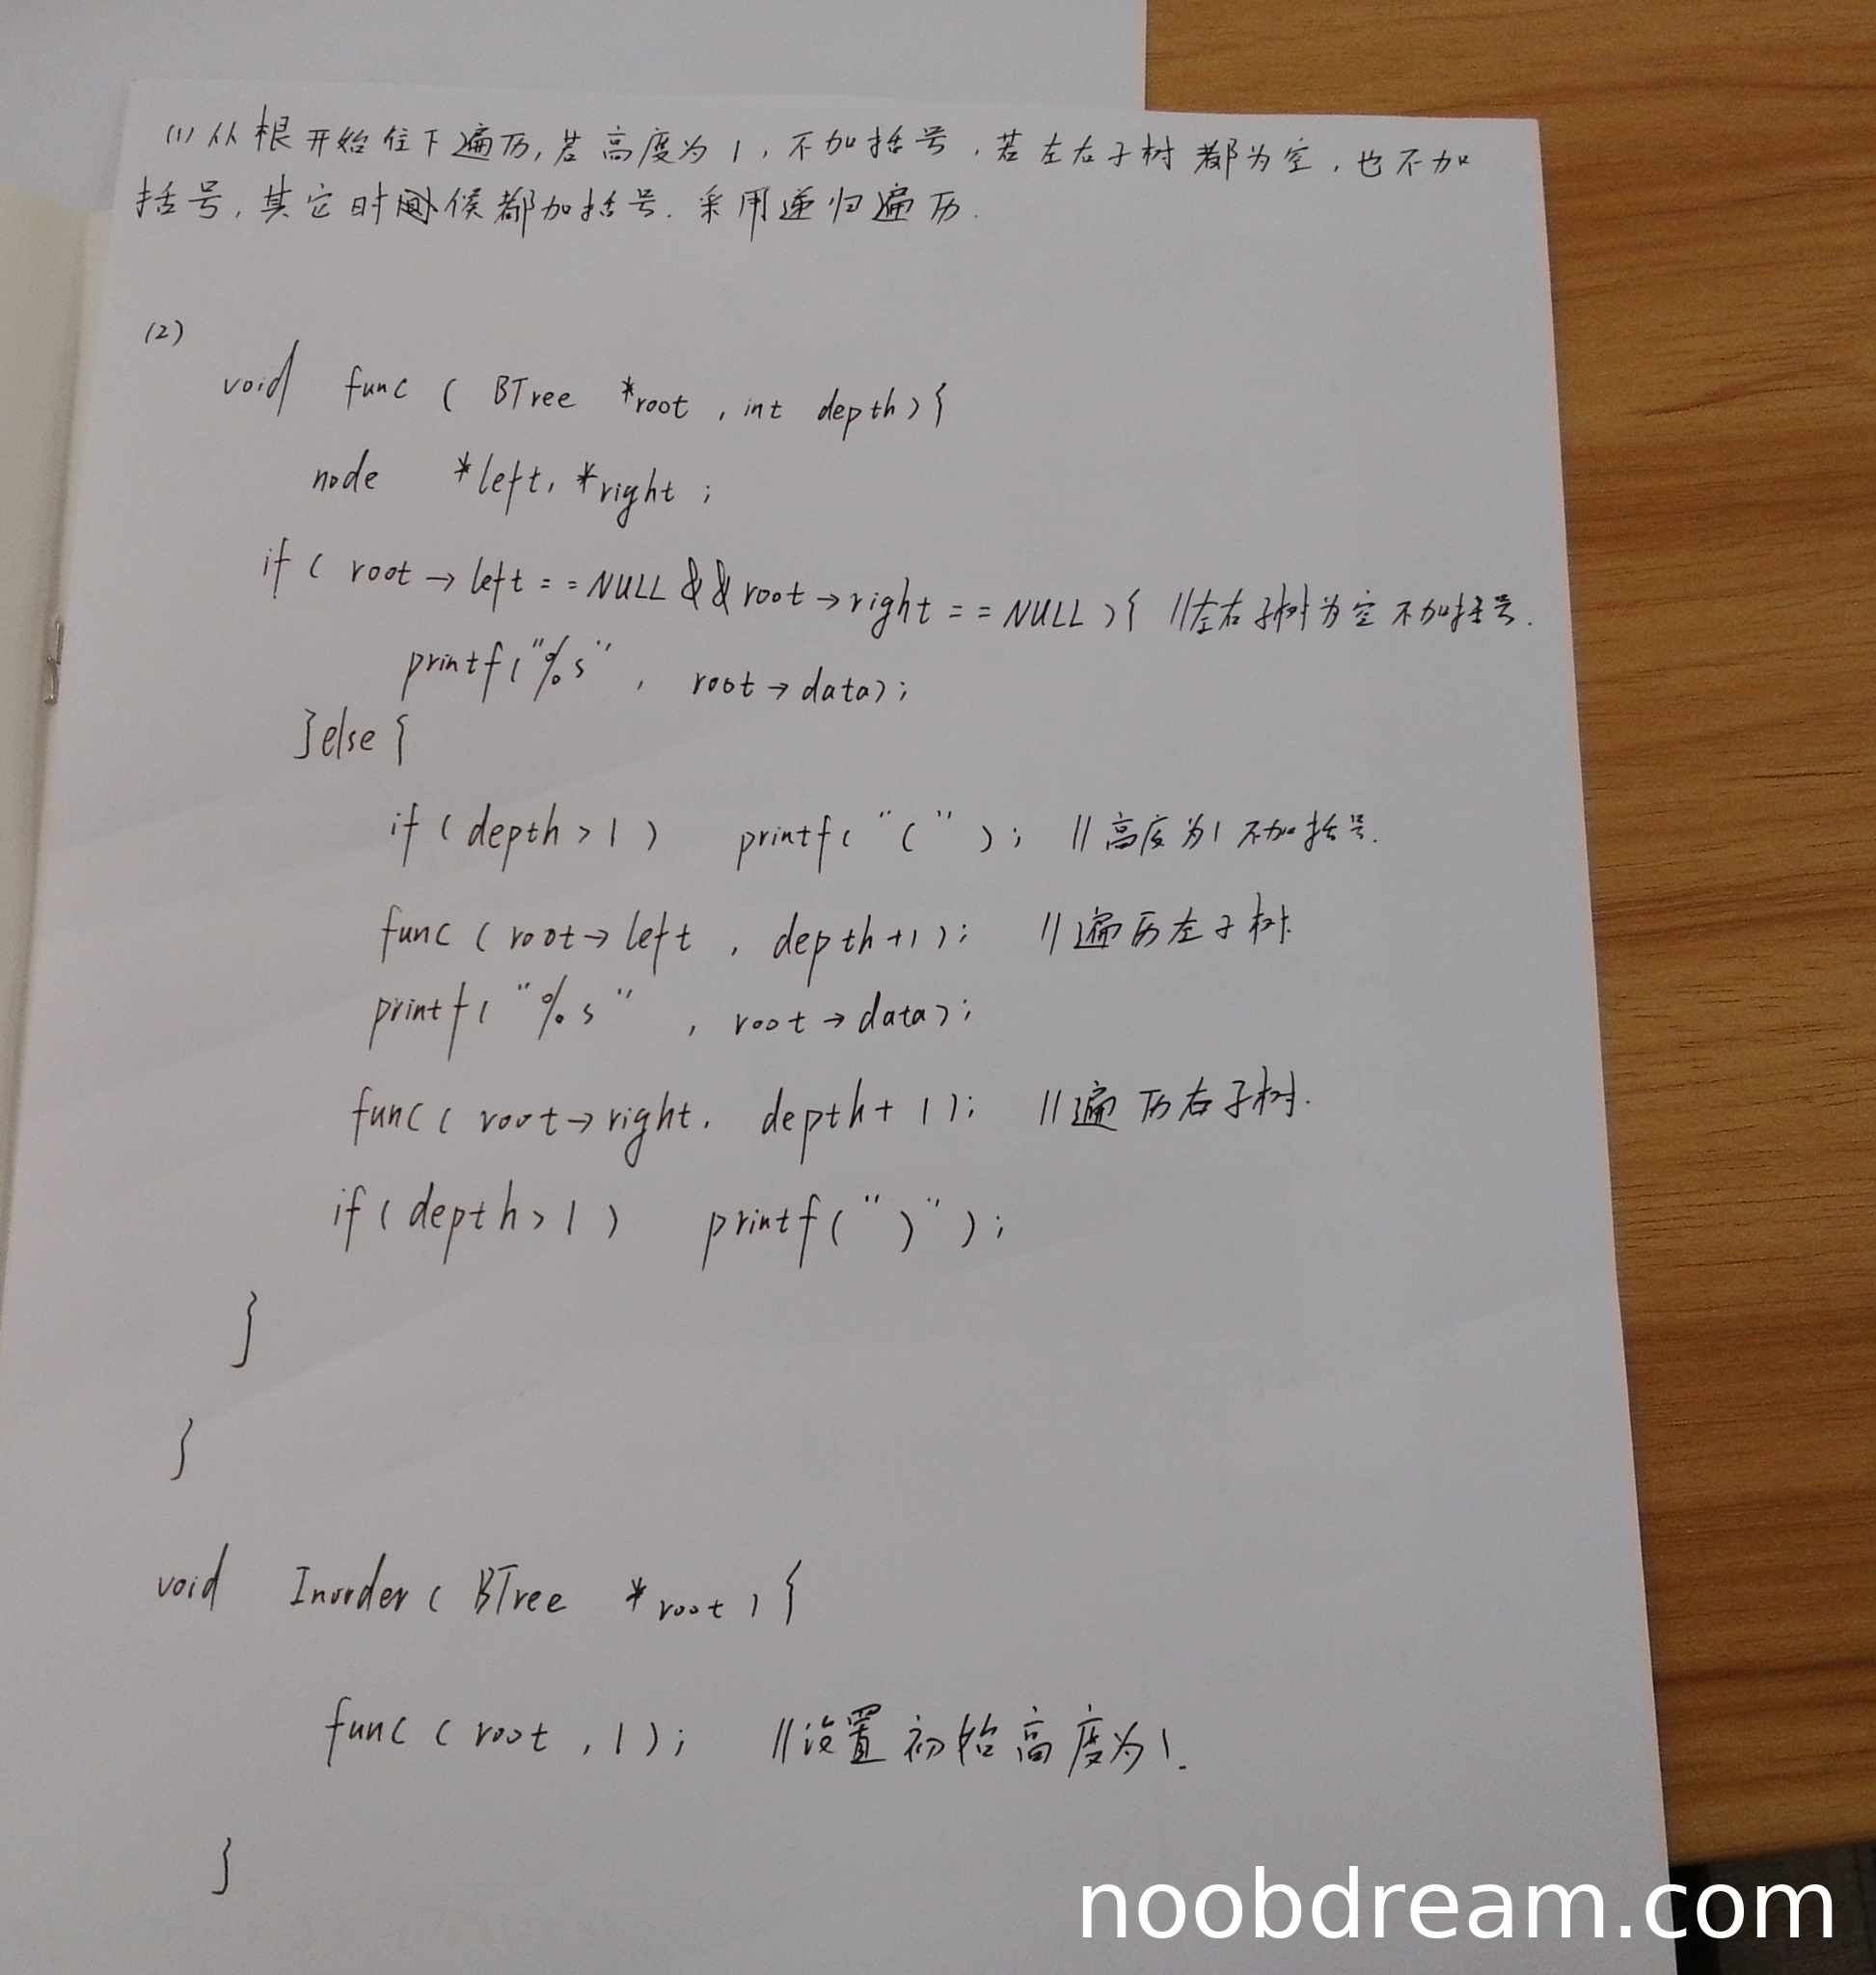 (1) 从根开始往下遍历,若高度为1,不加括号,若左右子树都为空,也不加
括号,其它时候都加括号.采用递归遍历.
(2)
void func ( BTree *root , int depth ) {
node *left, *right ;
if ( root → left == NULL && root → right == NULL ) { //左右子树为空不加括号.
printf ( "%s" , root → data ) ;
} else {
if ( depth > 1 ) printf ( " ( " ) ; // 高度为1不加括号.
func ( root → left , depth +1 ) ; // 遍历左子树.
printf ( "%s" , root → data ) ;
func ( root → right , depth + 1 ) ; // 遍历右子树.
if ( depth > 1 ) printf ( " ) " ) ;
}
}
void Inorder ( BTree *root ) {
func ( root , 1 ) ; //设置初始高度为1.
}
noobdream.com